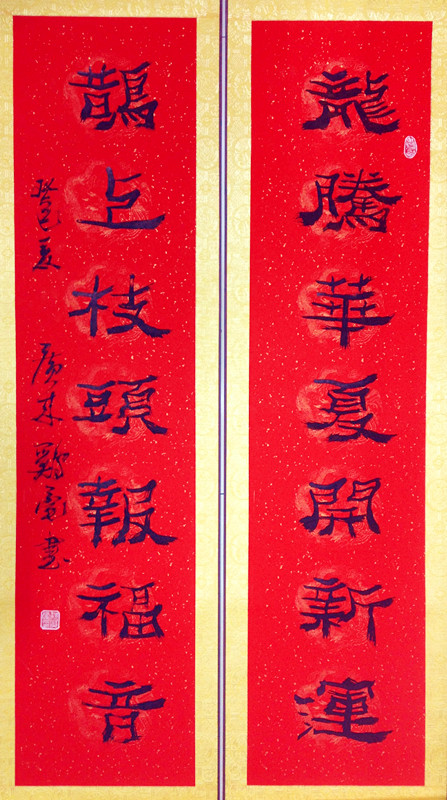 龍騰華夏開新運
鵲上枝頭報福音
癸巳夏 廣東 鄭 書